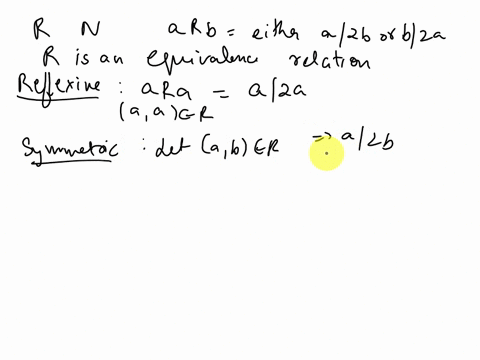 R N aRb = either a/2b or b/2a
R is an equivalence relation
Reflexive : aRa = a/2a
(a, a) ∈ R
Symmetric : Let (a, b) ∈ R ⇒ a/2b